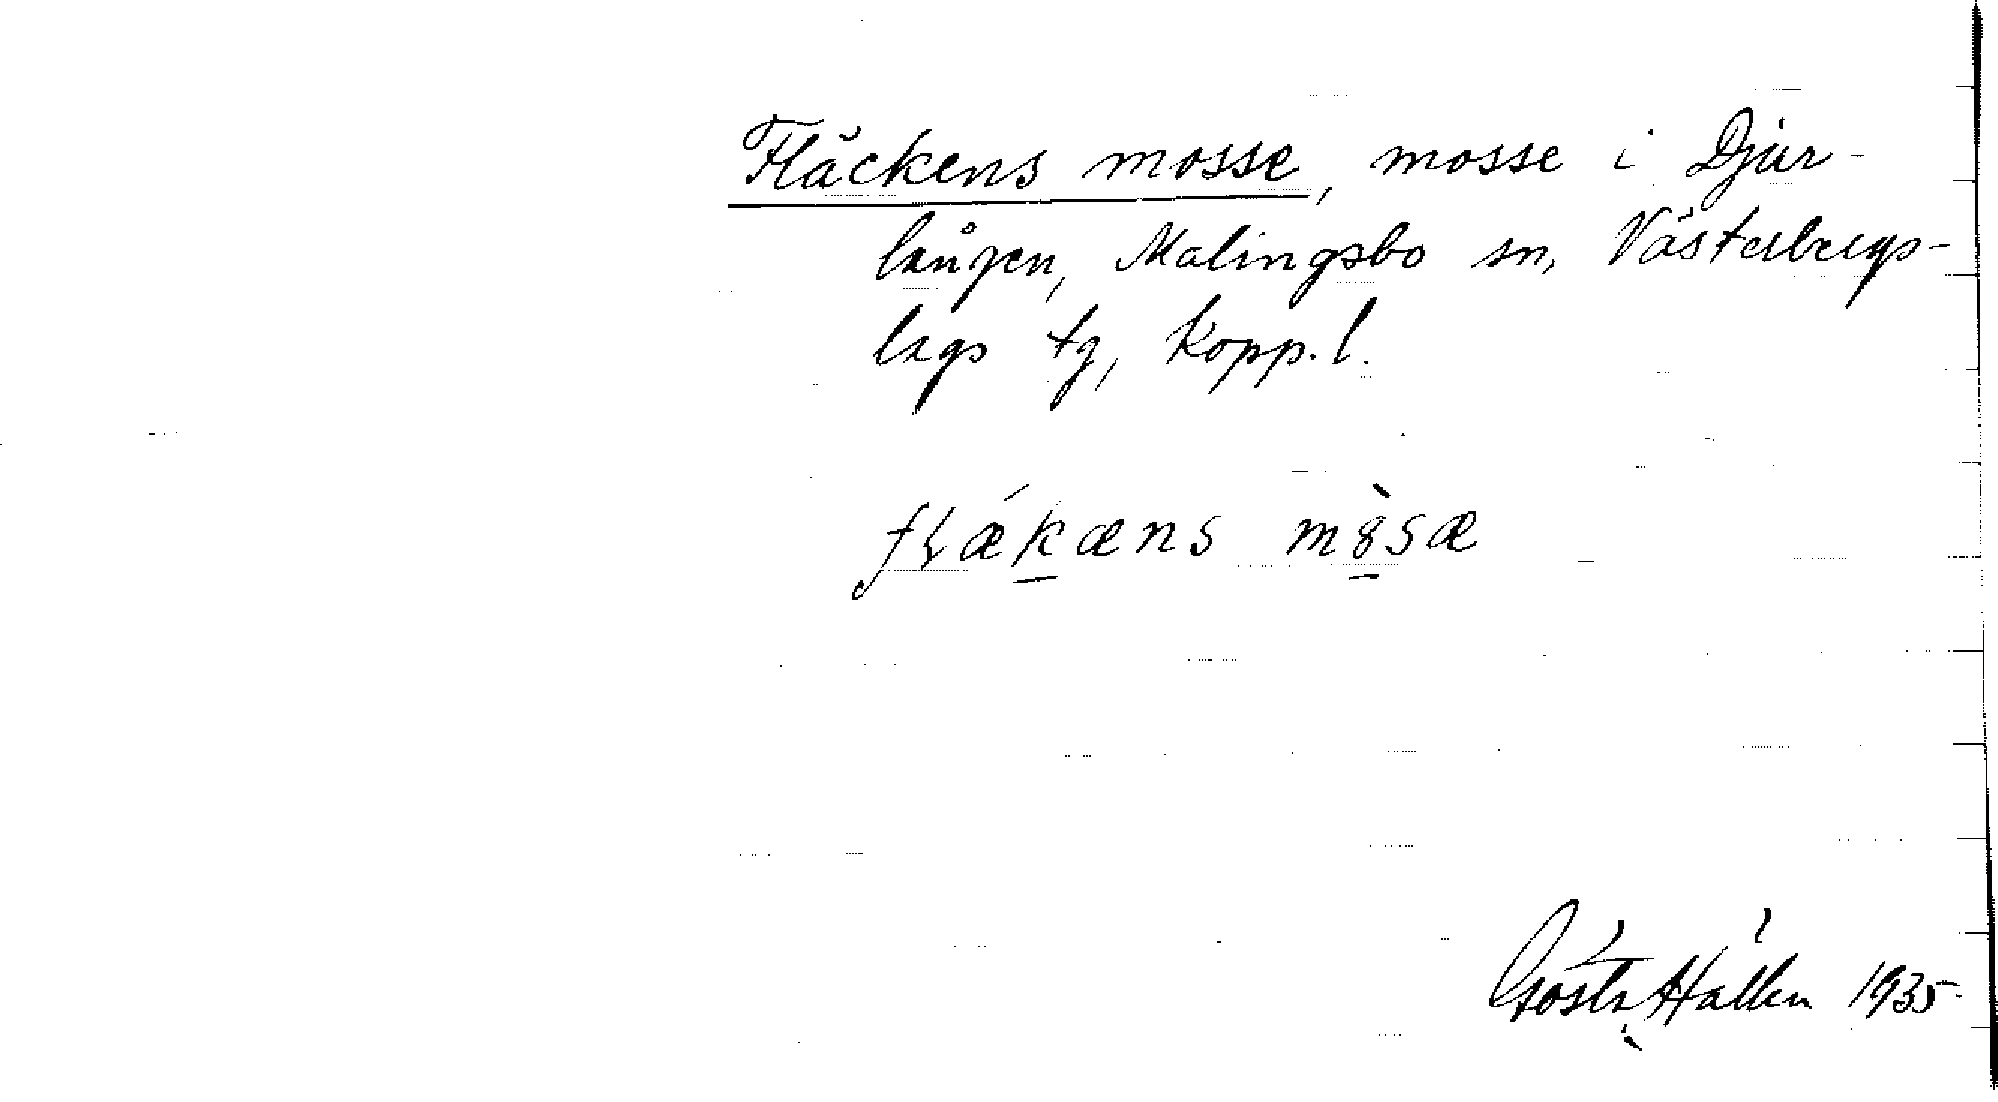 Fläckens mosse, mosse i Djur-
lången, Malingsbo sn, Västerbergs-
lags tg, Kopp. l.
flǽkæns m s̀æ
Gösta Hallen 1935